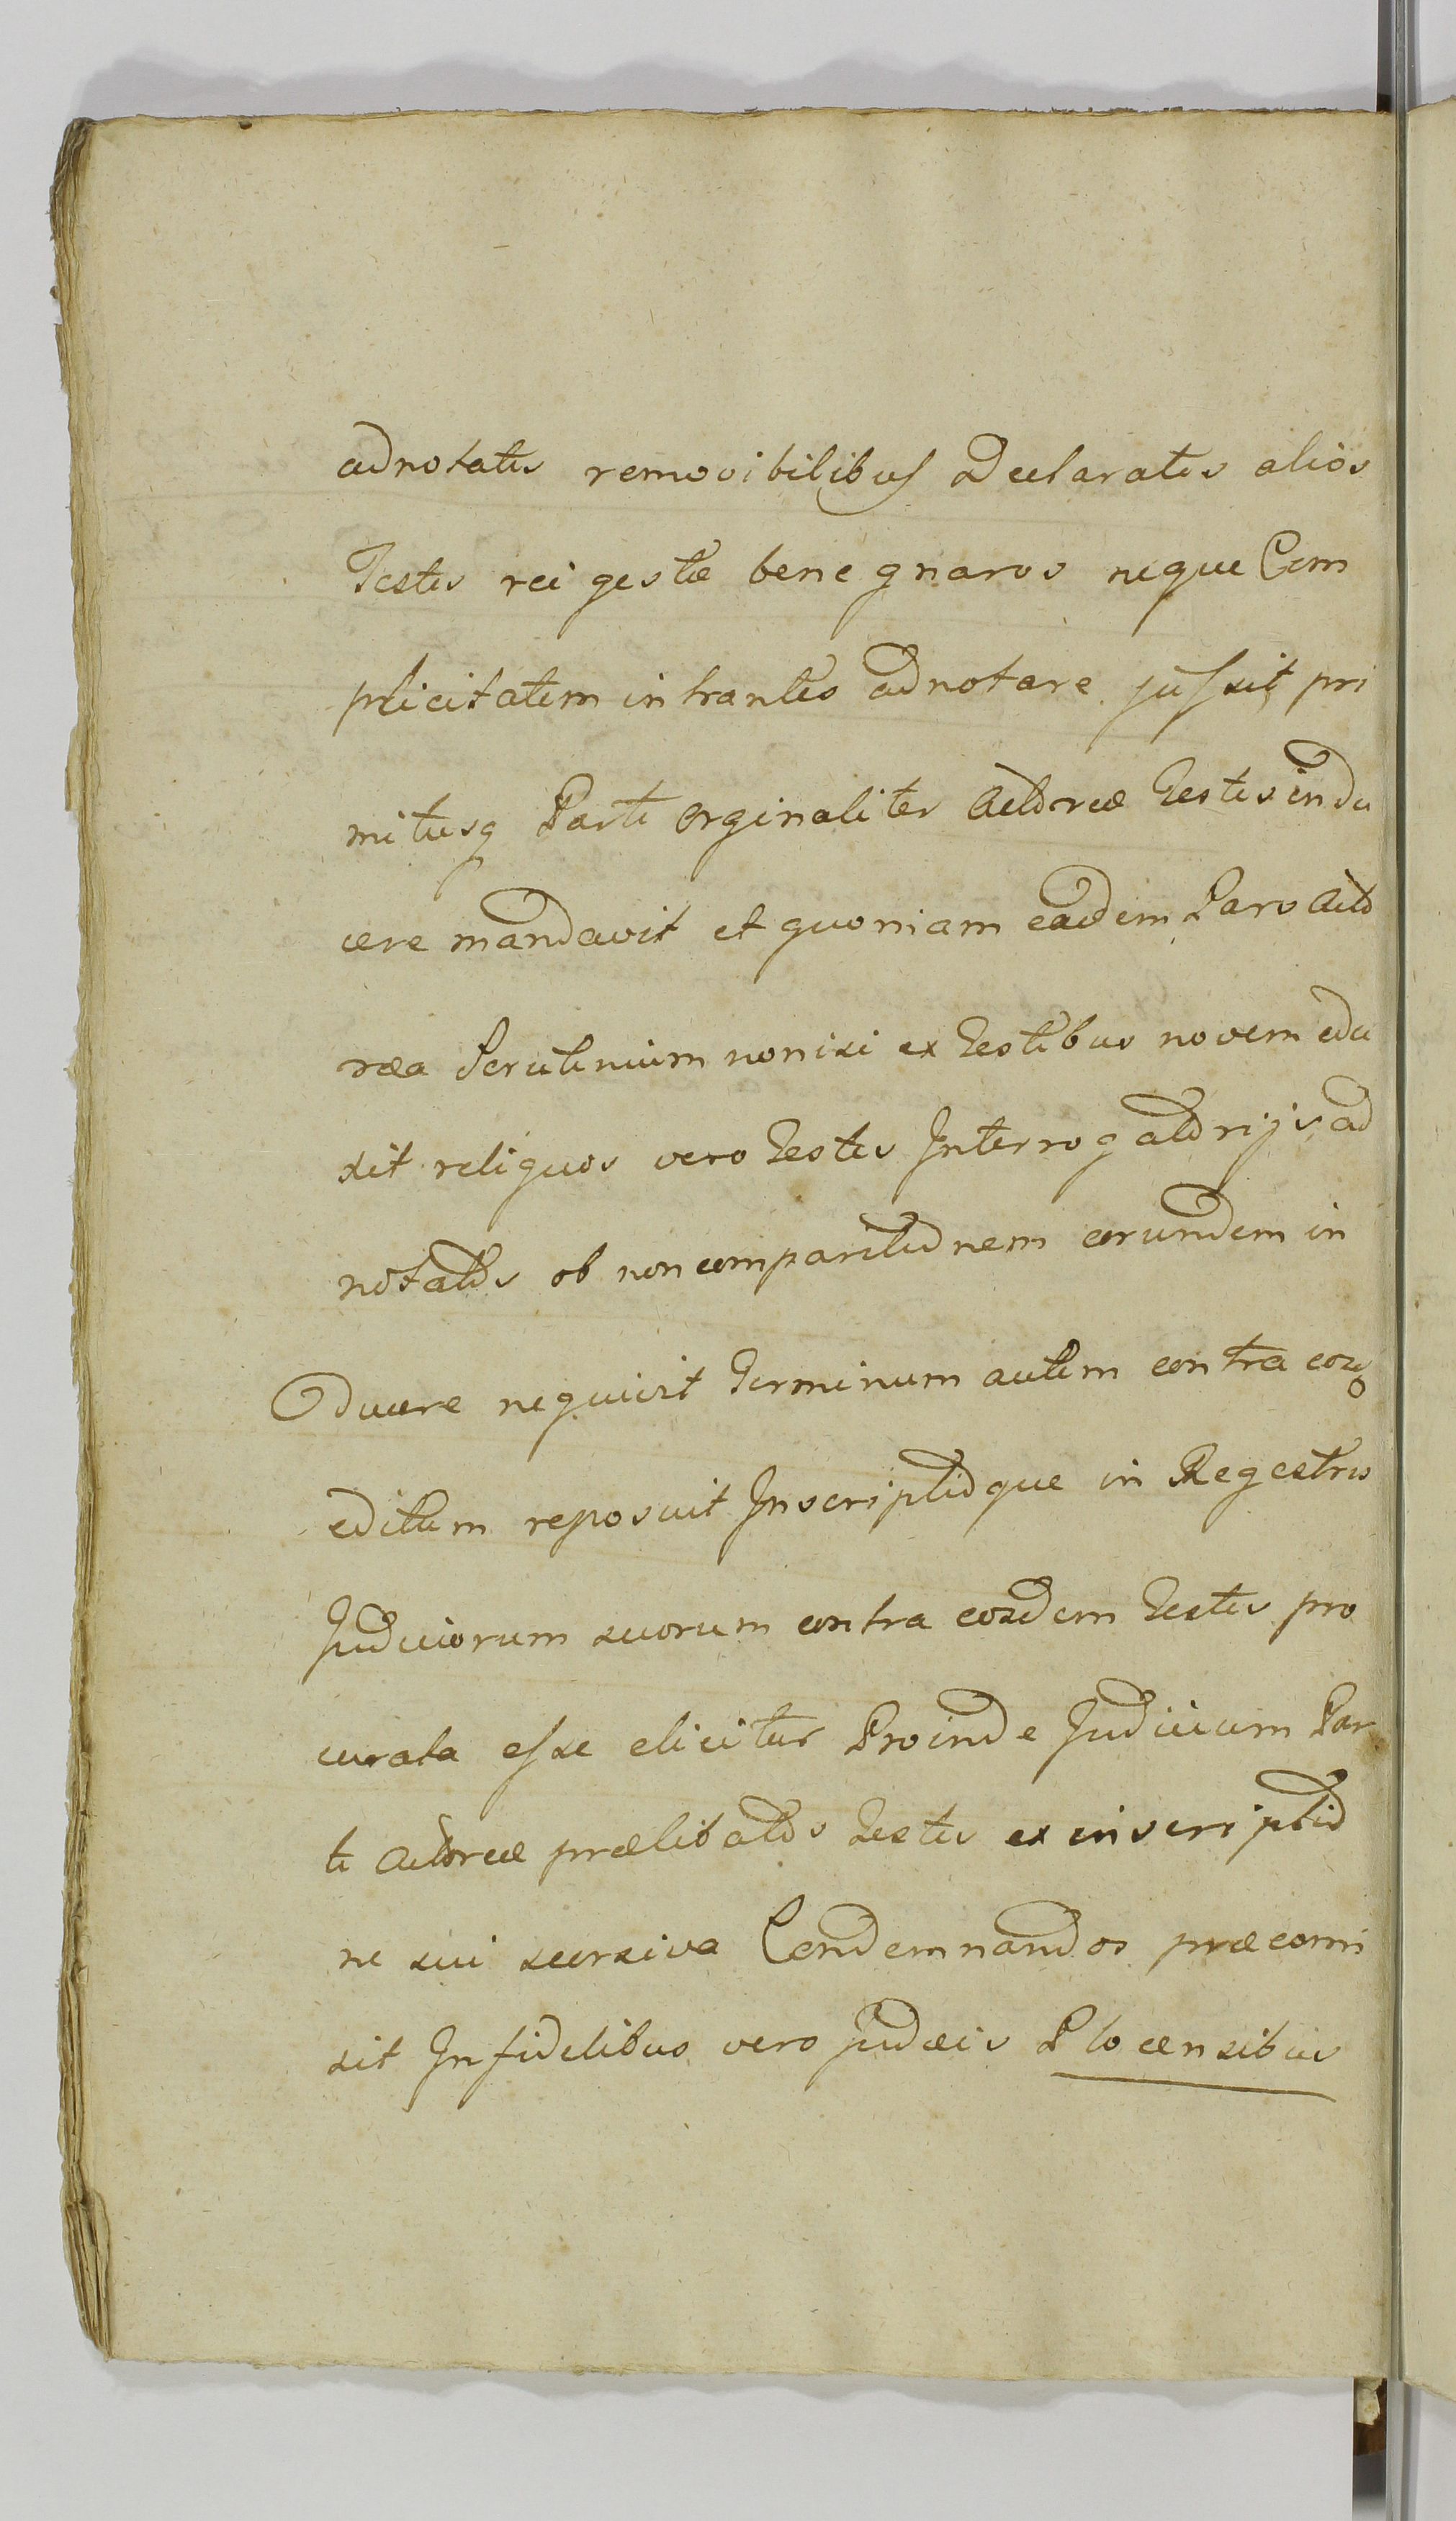 adnotatis removibilibus Declaratis alios
Testes rei gestæ bene gnaros neque Com
plicitatem intrantes adnotare jussit pri
mitusq Parti orginaliter Actoreæ Testes indu
cere mandavit et quoniam eadem Pars Acto
rea Scrutinium nonisi ex Testibus novem edu
xit reliquos vero Testes Interrogatorijs ad
notatos ob non comparitionem eorundem in
ducere nequivit Terminum autem contra eosq
editum reposuit Inscriptioque in Regestris
Judiciorum suorum contra eosdem Testes pro
curata esse elicitur Proinde Judicium Par
ti Actoreæ prælibatos Testes ex inscriptio
ne sui scursiva Condemnandos præcomi
sit Infidelibus vero Judæis Plocensibus